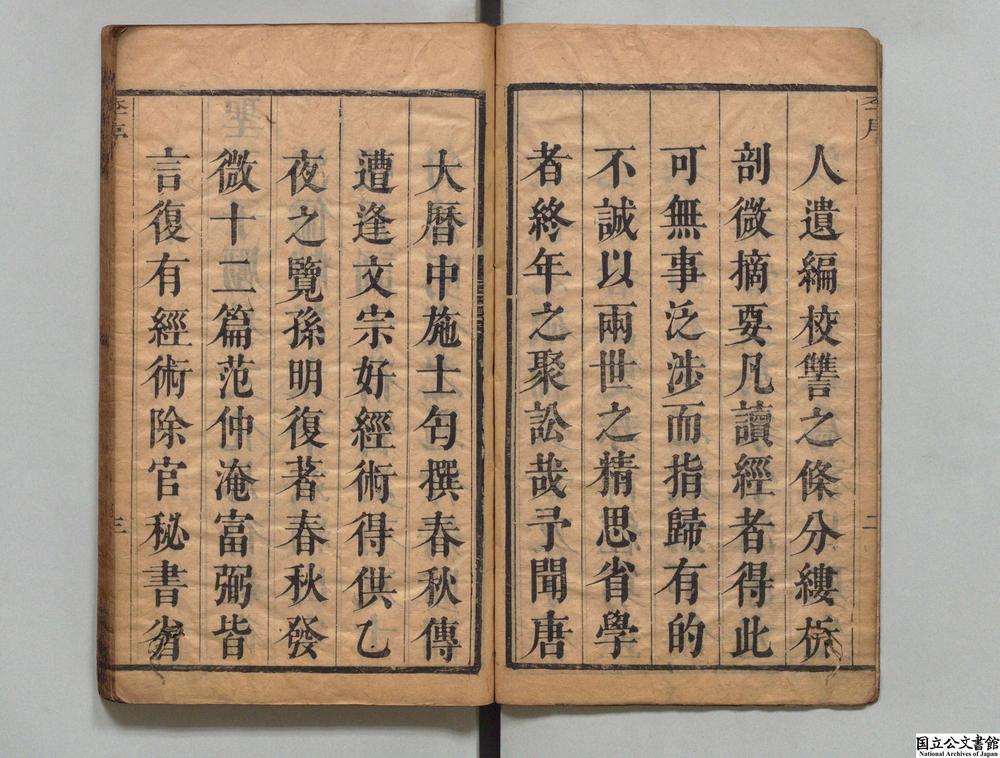 人遺編校讐之條分縷析
剖微摘要凡讀經者得此
可無事泛涉而指歸有的
不誠以兩世之精思省學
者終年之聚訟哉予聞唐
大曆中施士匄撰春秋傳
遭逢文宗好經術得供乙
夜之覽孫明復著春秋發
微十二篇范仲淹富弼皆
言復有經術除官秘書省
二
三
国立公文書館
National Archives of Japan